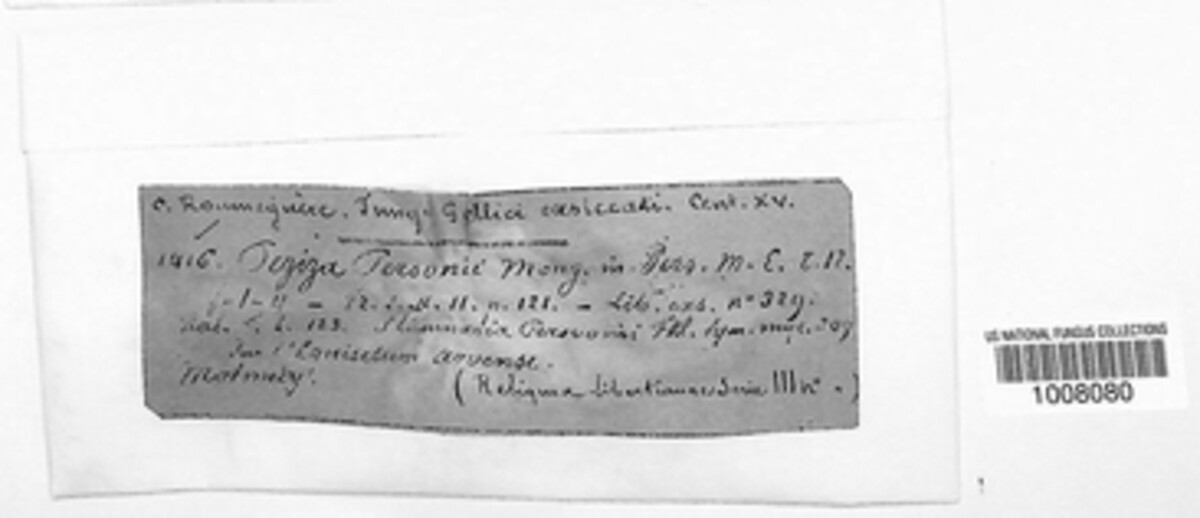 C. Roumeguère. Fungi Gallici exsiccati. Cent. XV.
1416. Peziza Persooni Moug. in Pers. M. E. t. 12.
f. 1-4 — n. 121. — Lib. exs. no 329.
Stamnaria Persooni Fkl. Sym. myc. 309
Sur l'Equisetum arvense.
Malmedy.
(Reliquiae Libertianae Serie III no
US NATIONAL FUNGUS COLLECTIONS
1008080